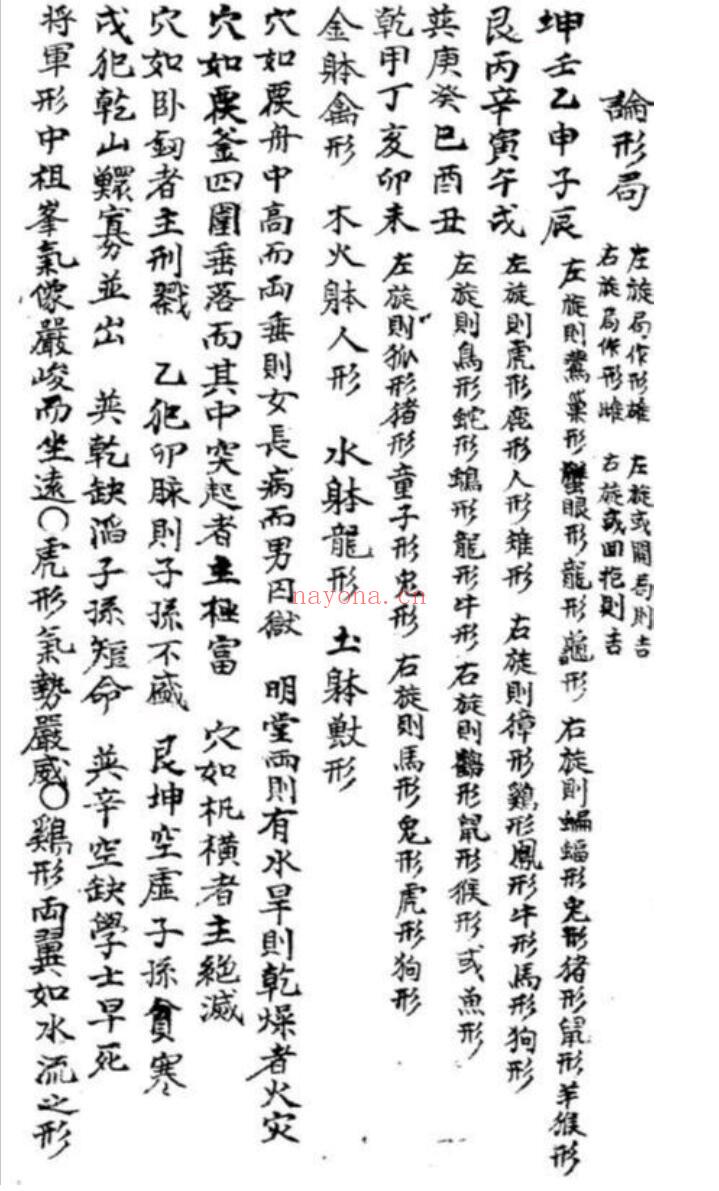 論形局 左旋局作形雄 左旋或開局則吉
右旋局作形雌 右旋或回抱則吉
坤壬乙申子辰 左旋則鶯巢形蟹眼形龍形龜形 右旋則蝙蝠形兎形猪形鼠形羊猴形
艮丙辛寅午戌 左旋則虎形鹿形人形雉形 右旋則獐形鷄形鳳形牛形馬形狗形
巽庚癸巳酉丑 左旋則鳥形蛇形形龍形牛形 右旋則形鼠形猴形或魚形
乾甲丁亥卯未 左旋則狐形猪形童子形兎形 右旋則馬形兎形虎形狗形
金躰禽形 木火躰人形 水躰龍形 土躰獣形
穴如覆舟中高而両垂則女長病而男囚獄 明堂雨則有水旱則乾燥者火灾
穴如覆釜四圍垂落而其中突起者主極富 穴如机橫者主絶滅
穴如卧釼者主刑戮 乙犯卯脉則子孫不盛 艮坤空虛子孫貧寒
戌犯乾山鰥寡並出 巽乾缺滔子孫短命 巽辛空缺學士早死
将軍形中祖峯氣像嚴峻而坐遠〇虎形氣勢嚴威〇鷄形両翼如水流之形
nayona.cn